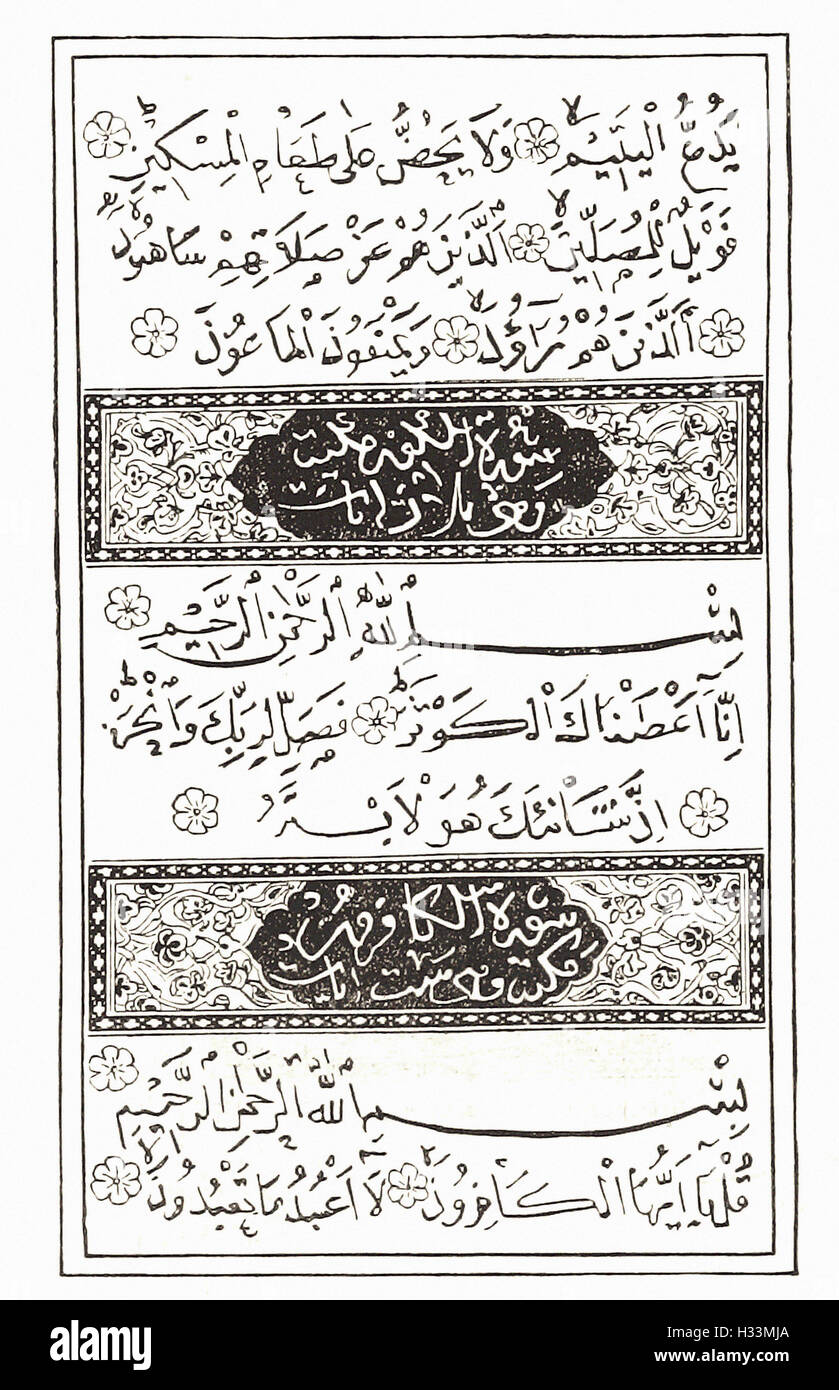 يَدُعُّ الْيَتِيمَ وَلَا يَحُضُّ عَلَى طَعَامِ الْمِسْكِينِ
فَوَيْلٌ لِلْمُصَلِّينَ الَّذِينَ هُمْ عَنْ صَلَاتِهِمْ سَاهُونَ
الَّذِينَ هُمْ يُرَاؤُنَ وَيَمْنَعُونَ الْمَاعُونَ
سورة الكوثر مكية
وهي ثلاث آيات
بِسْمِ اللَّهِ الرَّحْمَنِ الرَّحِيمِ
إِنَّا أَعْطَيْنَاكَ الْكَوْثَرَ فَصَلِّ لِرَبِّكَ وَانْحَرْ
إِنَّ شَانِئَكَ هُوَ لْابْتَرُ
سورة الكافرون
مكية وهي ست آيات
بِسْمِ اللَّهِ الرَّحْمَنِ الرَّحِيمِ
قُلْ يَا أَيُّهَا الْكَافِرُونَ لَا أَعْبُدُ مَا تَعْبُدُونَ
alamy
alamy stock photo
H33MJA
www.alamy.com